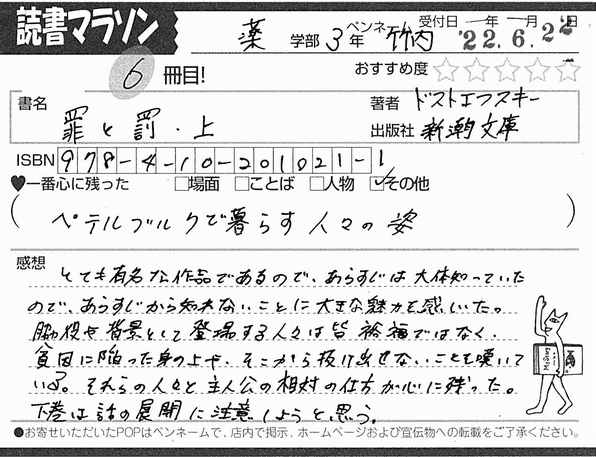 読書マラソン
薬 学部 3年 ペンネーム 竹内 受付日 年 月 日 '22.6.22
6 冊目! おすすめ度 ☆☆☆☆☆
書名 罪と罰・上 著者 ドストエフスキー
出版社 新潮文庫
ISBN 978-4-10-201021-1
♥一番心に残った □場面 □ことば □人物 ☑その他
(ペテルブルクで暮らす人々の姿)
感想
とても有名な作品であるので、あらすじは大体知っていた
ので、あらすじから知れないことに大きな魅力を感じた。
脇役や背景として登場する人々は皆裕福ではなく、
貧困に陥った身の上や、そこから抜け出せないことを嘆いて
いる。それらの人々と主人公の相対の仕方が心に残った。
下巻は話の展開に注意しようと思う。
●お寄せいただいたPOPはペンネームで、店内で掲示、ホームページおよび宣伝物への転載をご了承ください。